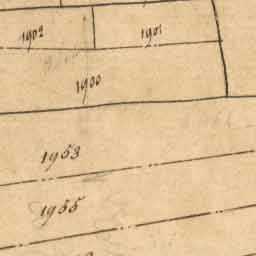 1902 1901
1900
1953
1955